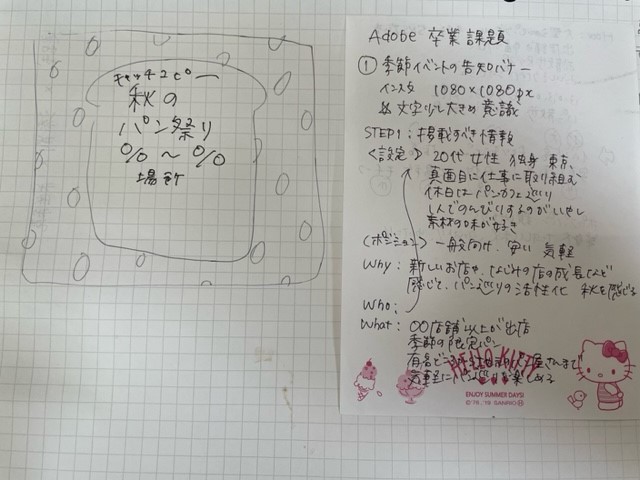 キャッチコピー
秋の
パン祭り
%~%
場所
Adobe 卒業課題
① 季節イベントの告知バナー
インスタ 1080×1080px
文字少し大きめ 意識
STEP1: 掲載すべき情報
<設定> 20代 女性 独身 東京、
真面目に仕事に取り組む
休日はパンカフェ巡り
1人でのんびりするのがいやし
素材の味が好き
(ポジション) 一般向け. 安い 気軽
Why: 新しいお店や、なじみの店の成長など
感じて、パン巡りの活性化 秋を感じる
Who:
What: 〇〇店舗以上が出店
季節の限定パン
有名どころから地元のパン屋さんまで
気軽にパン巡りを楽しめる
HELLO KITTY
ENJOY SUMMER DAYS!
©'76,'19 SANRIO